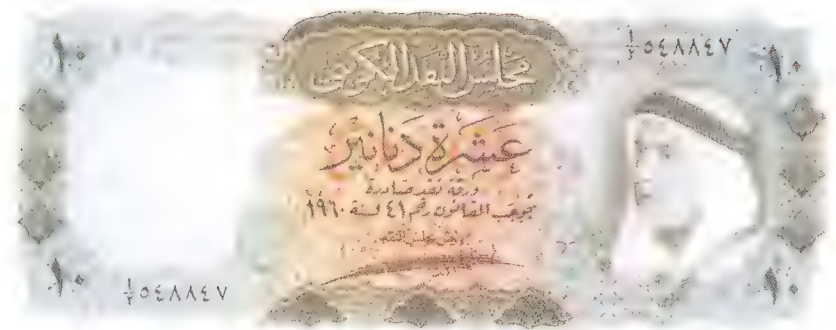 ١٠
١/٢ ٠٥٤٨٨٤٧
١٠
مجلس النقد الكويتي
عشرة دنانير
ورقة نقد صادرة
بموجب القانون رقم ٤١ لسنة ١٩٦٠
رئيس مجلس النقد
١٠
١/٢ ٠٥٤٨٨٤٧
١٠